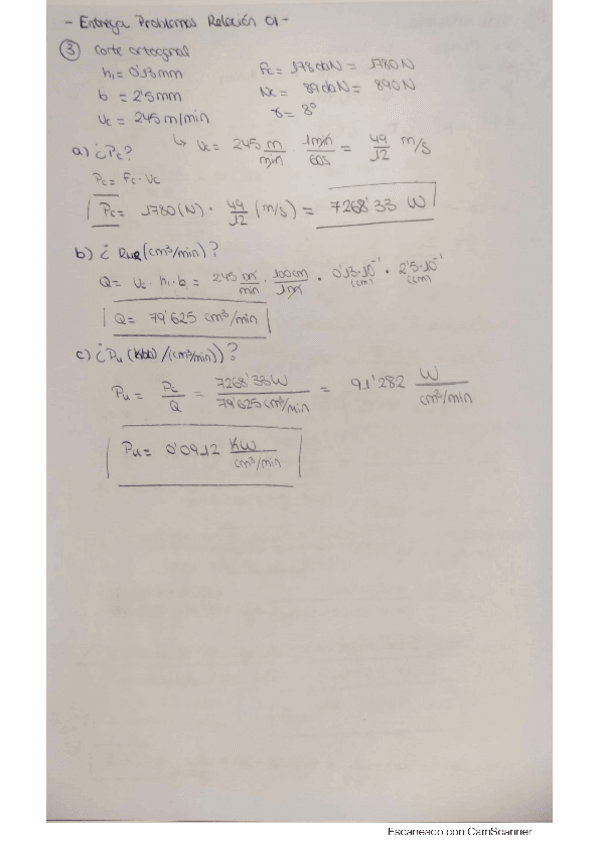 - Entrega Problemas Relación 01 -
③ Corte ortogonal
h₁ = 0'13 mm Fc = 178 daN = 1780 N
b = 2'5 mm Nc = 89 daN = 890 N
Vc = 245 m/min γ = 8°
a) ¿Pc? ↳ Vc = 245 m/min 1min/60s = 49/12 m/s
Pc = Fc · Vc
Pc = 1780 (N) · 49/12 (m/s) = 7268'33 W
b) ¿ (cm³/min)?
Q = Vc · h₁ · b = 245 m/min · 100cm/1m · 0'13·10⁻¹ (cm) · 2'5·10⁻¹ (cm)
Q = 79'625 cm³/min
c) ¿Pu (kW/(cm³/min))?
Pu = Pc/Q = 7268'33 W/79'625 cm³/min = 91'282 W/cm³/min
Pu = 0'0912 KW/cm³/min
Escaneado con CamScanner